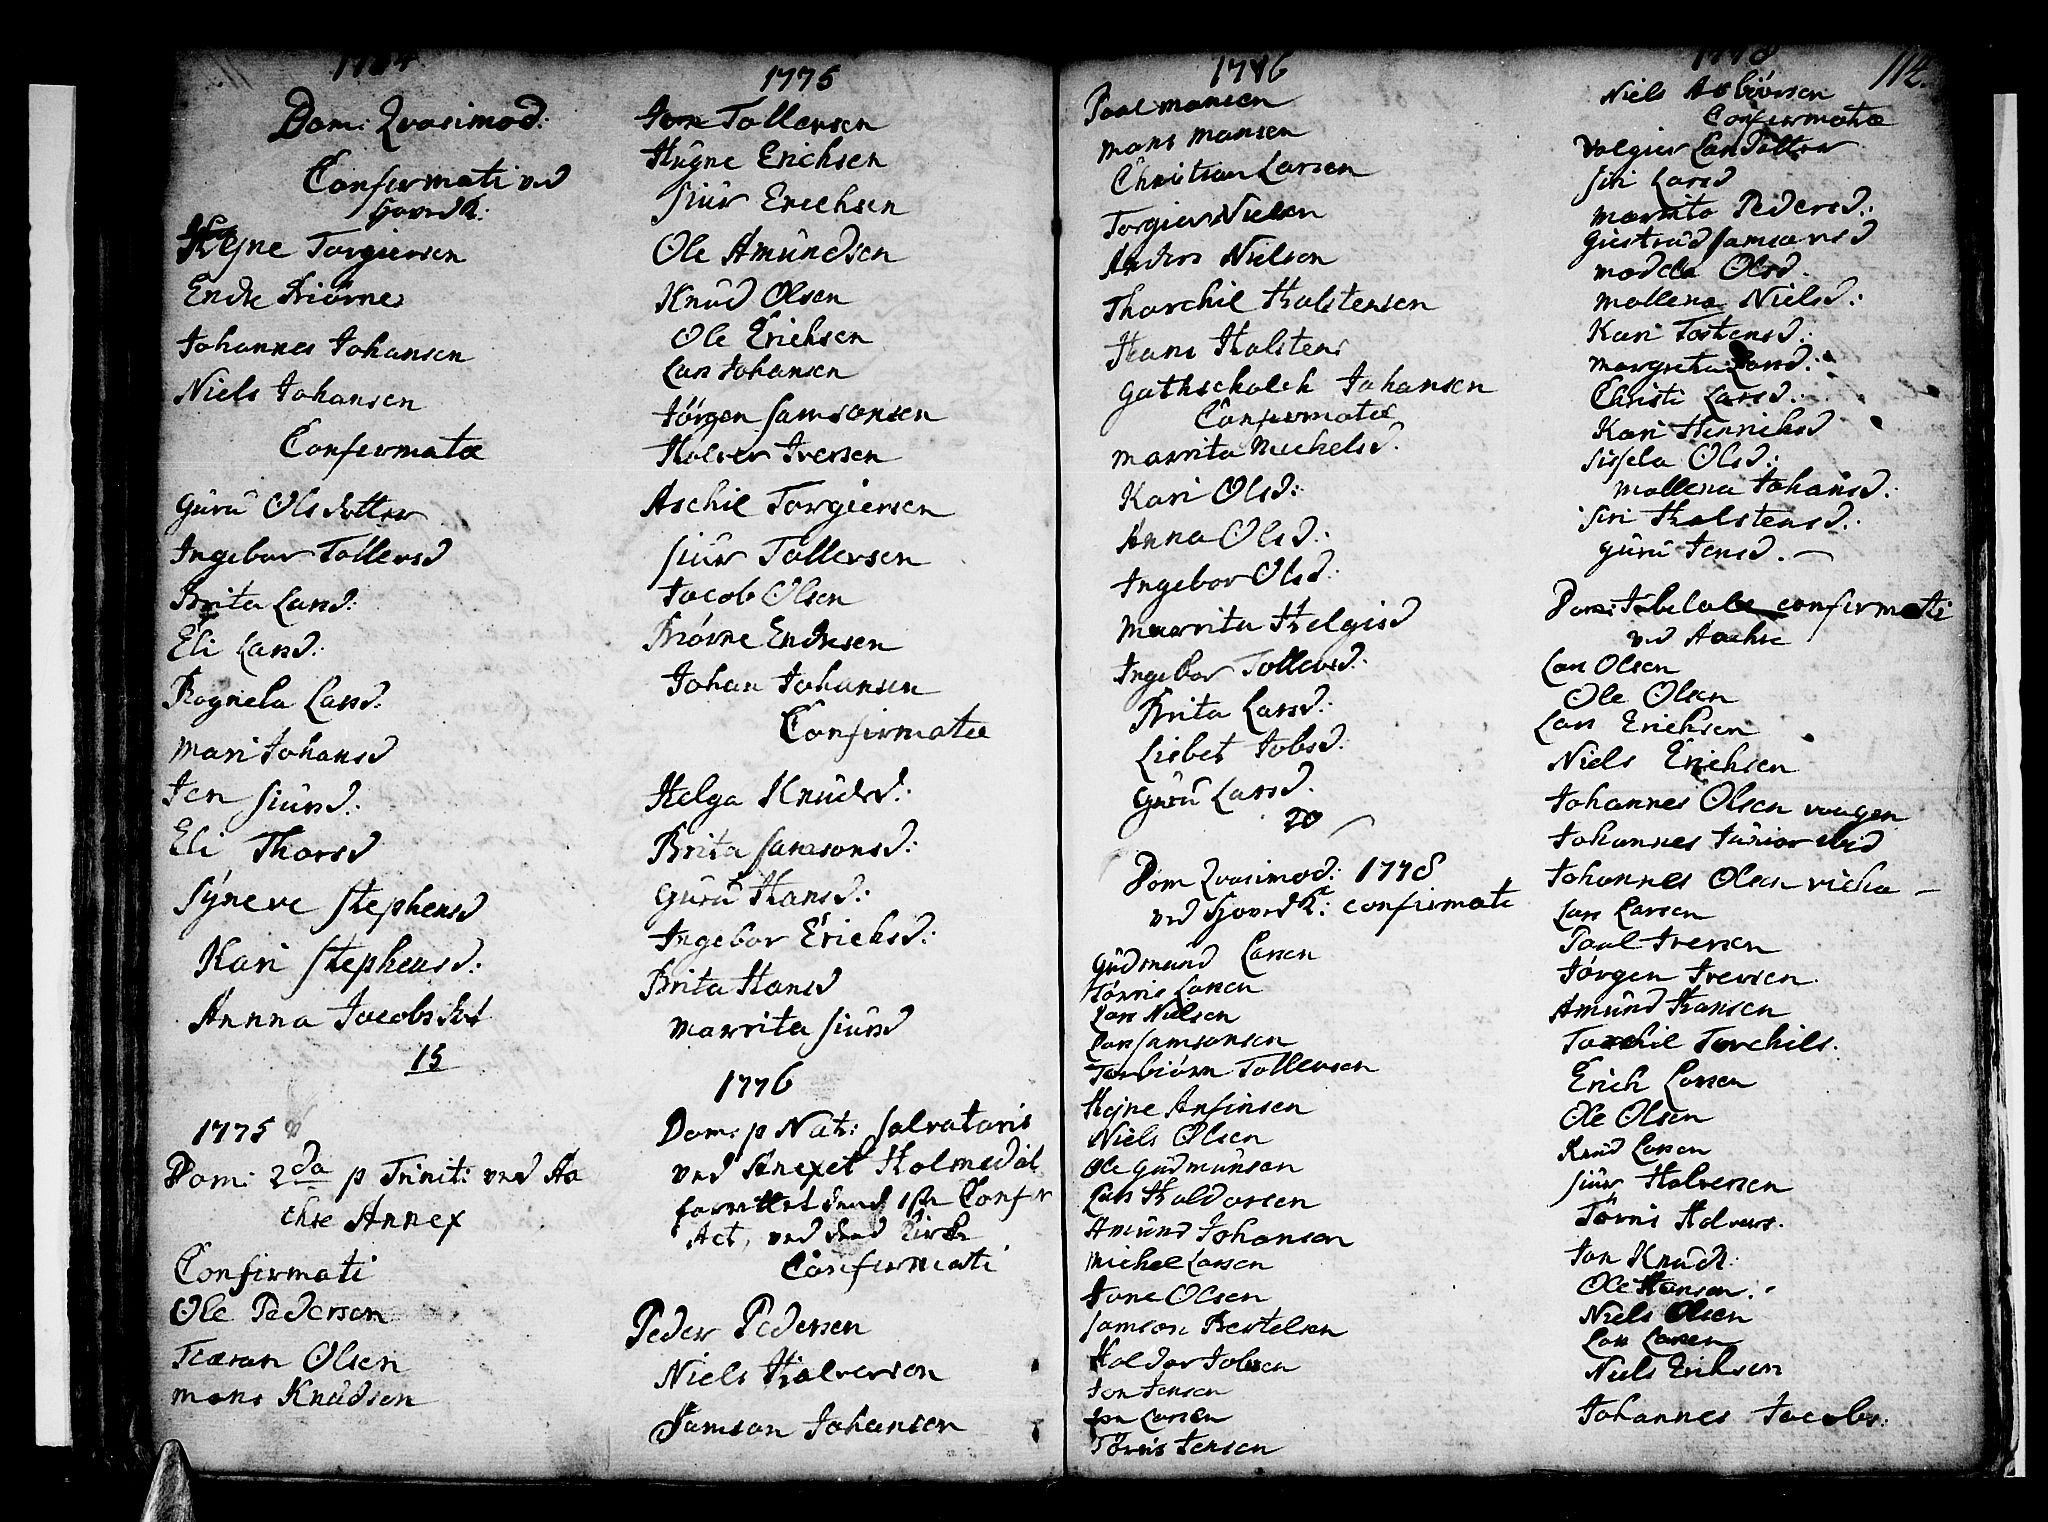 1774
Dom: Qvasimod:
Confirmati ved
Hovedk:
Hejne Torgiersen
Endre Biørne
Johannes Johansen
Niels Johansen
Confermatæ
Guru Olsdotter
Ingebor Tollersd
Brita Larsd:
Eli Larsd:
Ragnela Larsd:
Mari Johansd
Jen Siursd:
Eli Thorsd
Syneve Stephensd
Kari Stephensd:
Annna Jacobsdot
15
1775
Dom: 2da p Trinit: ved Aa
chre Annex
Confirmati
Ole Pedersen
Olsen
Mons Knudsen
1775
Tollersen
Hugne Erichsen
Siur Erichsen
Ole Amundsen
Knud Olsen
Ole Erichsen
Lars Johansen
Jørgen Samsonsen
Halver Iversen
Aschil Torgiersen
Siur Tollersen
Jacob Olsen
Biørne Endresen
Johan Johansen
Confirmatæ
Helga Knudsd:
Brita Samsonsd:
Guru Hansd:
Ingebor Erichsd:
Brita Hansd
Marrita Siursd
1776
Dom: p Nat: Salvatoris
ved Anexet Holmedal
forrettet dend 1ste Confir
Act, ved dend Kirke
Confirmati
Peder Pedersen
Niels Halversen
Samson Johansen
1776
Poul Monsen
Mons Monsen
Christian Larsen
Torgier Nielsen
Anders Nielsen
Thorchil Holstensen
Hans Holstens
Gothschalch Johansen
Confermatæ
Marrita Michelsd.
Kari Olsd:
Anna Olsd:
Ingebor Olsd:
Marrita Helgisd
Ingebor Tollersd:
Brita Larsd:
Lisbet Jobsd:
Guru Larsd.
20
Dom Qvasimod: 1778
ved Hovedk: confirmati
Gudmund Larsen
Tørris Larsen
Lars Nielsen
Lars Samsonsen
Torbiørn Tollersen
Hejne Anfinsen
Niels Olsen
Ole Gudmunsen
Lars Haldorsen
Amund Johansen
Michel Larsen
Jone Olsen
Samson Bertelsen
Haldor Jobsen
Jon Jensen
Jon Larsen
Tørris Jensen
1778
112.
Niels Asbiørsen
Confermatæ
Volgier Larsdotter
Siri Larsd
Marrita Pedersd:
Giertrud Samsonsd
Madela Olsd.
Mallena Nielsd:
Kari Tostensd:
Margreta Larsd:
Christi Larsd.
Kari Henrichsd
Sissela Olsd:
Mallena Johansd:
Siri Holstensd:
Guru Jensd.
Dom: Jubelate confirmati
ved Aachre
Lars Olsen
Ole Olsen
Lars Erichsen
Niels Erichsen
Johannes Olsen vaagen
Johannes Junior ibid
Johannes Olsen vicha
Lars Larsen
Poul Iversen
Jørgen Iversen
Amund Hansen
Torchil Torchils.
Erich Larsen
Ole Olsen
Knud Larsen
Siur Halversen
Tørris Halvers.
Jon Knuds:
Ole Hansen.
Niels Olsen
Lars Larsen
Niels Erichsen
Johannes Jacobs: